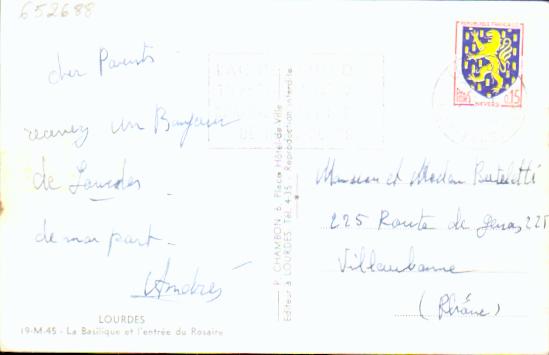 652688
cher Parents
recevez un Bonjour
de Lourdes
de ma part -
Andrés
LOURDES
19-M.45 - La Basilique et l'entrée du Rosaire
P. CHAMBON 6, Place Hôtel-de-Ville
Editeur à LOURDES Tél. 4-35 - Reproduction interdite
REPUBLIQUE FRANÇAISE
POSTES 0,15
NEVERS
Monsieur et Madam
225 Route de genas 225
Villeurbanne
(Rhône)